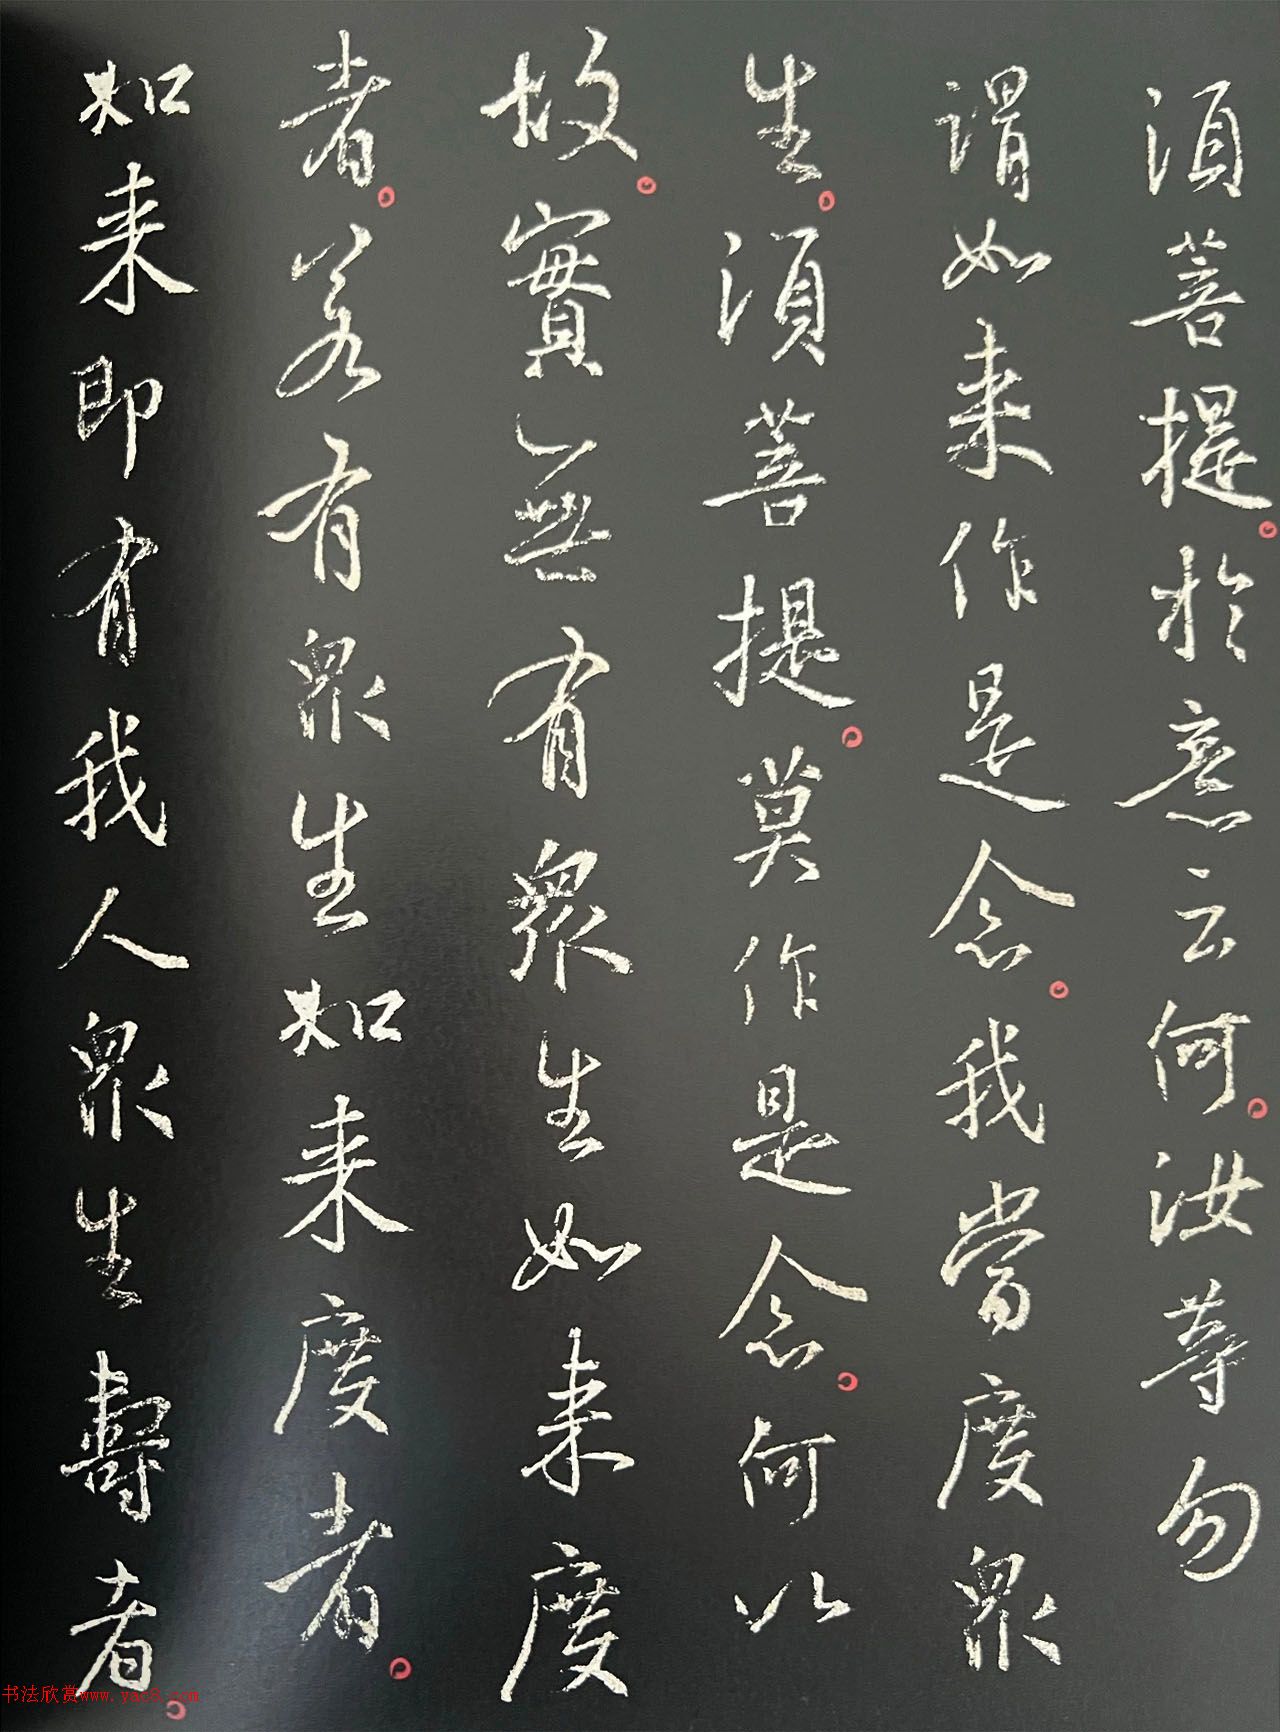 須菩提。於意云何。汝等勿
謂如来作是念。我當度衆
生。須菩提。莫作是念。何以
故。實無有衆生如来度
者。若有衆生如来度者。
如来即有我人衆生壽者。
书法欣赏www.yac8.com